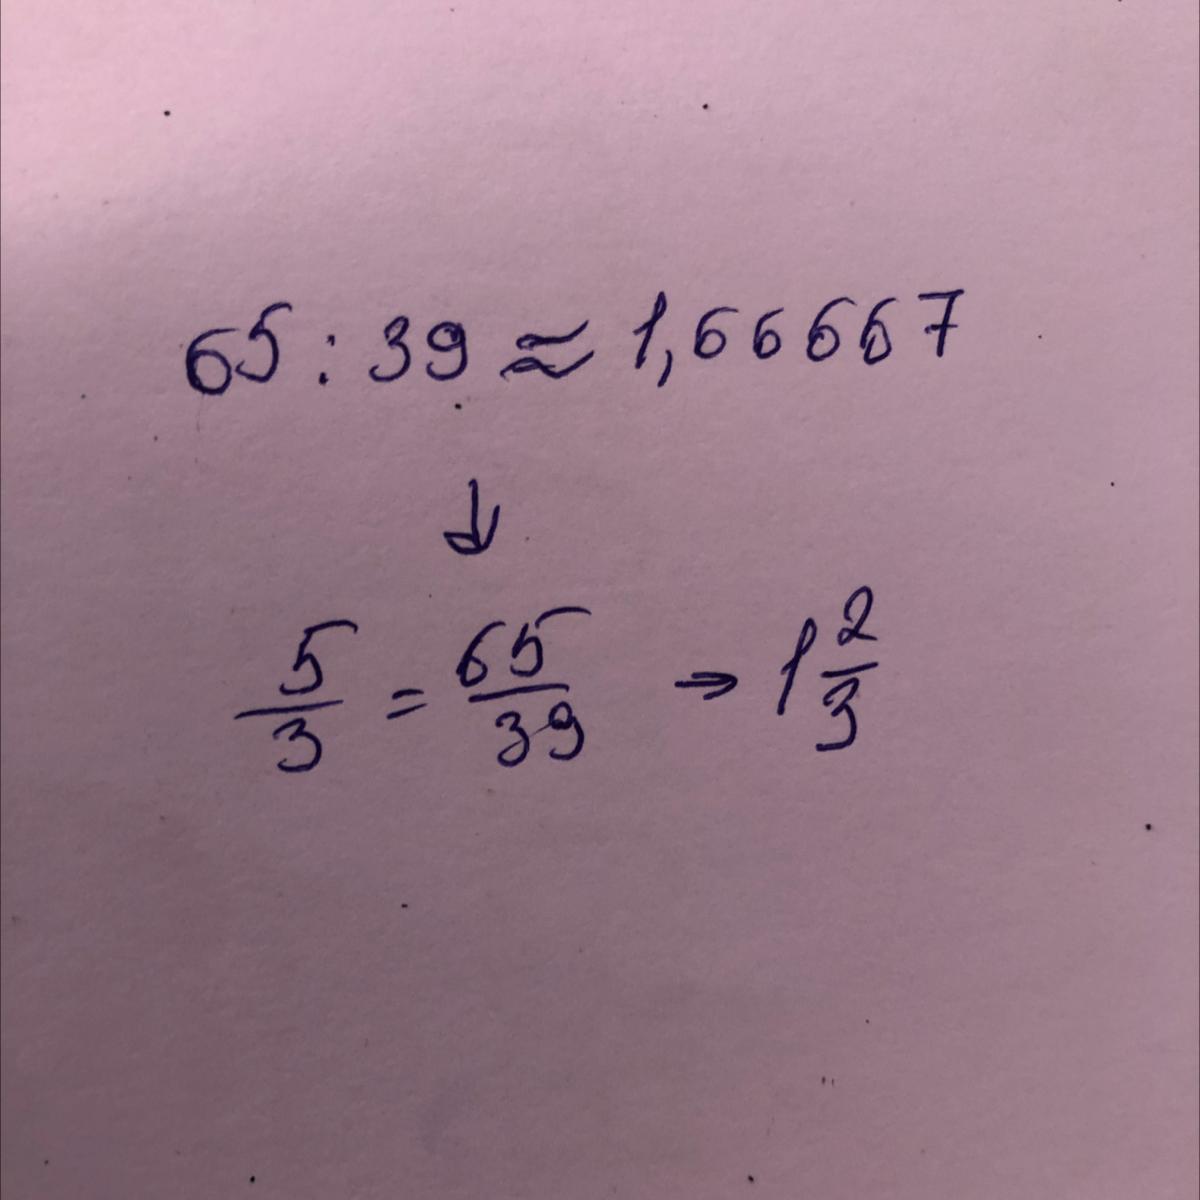 65 : 39 ≈ 1,66667
↓
5/3 = 65/39 → 1 2/3